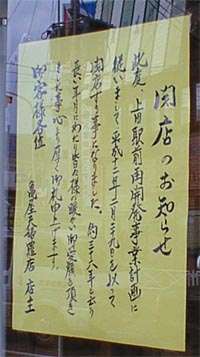 閉店のお知らせ
此度、上田駅前再開発事業計画に
従いまして平成十二年二月二十九日を以って
閉店する事になりました。約三十八年と云う
長い年月にわたり皆々様の暖かい御愛顧を頂き
ました事心より厚く御礼申し上げます。
御客様各位
亀屋天婦羅店 店主